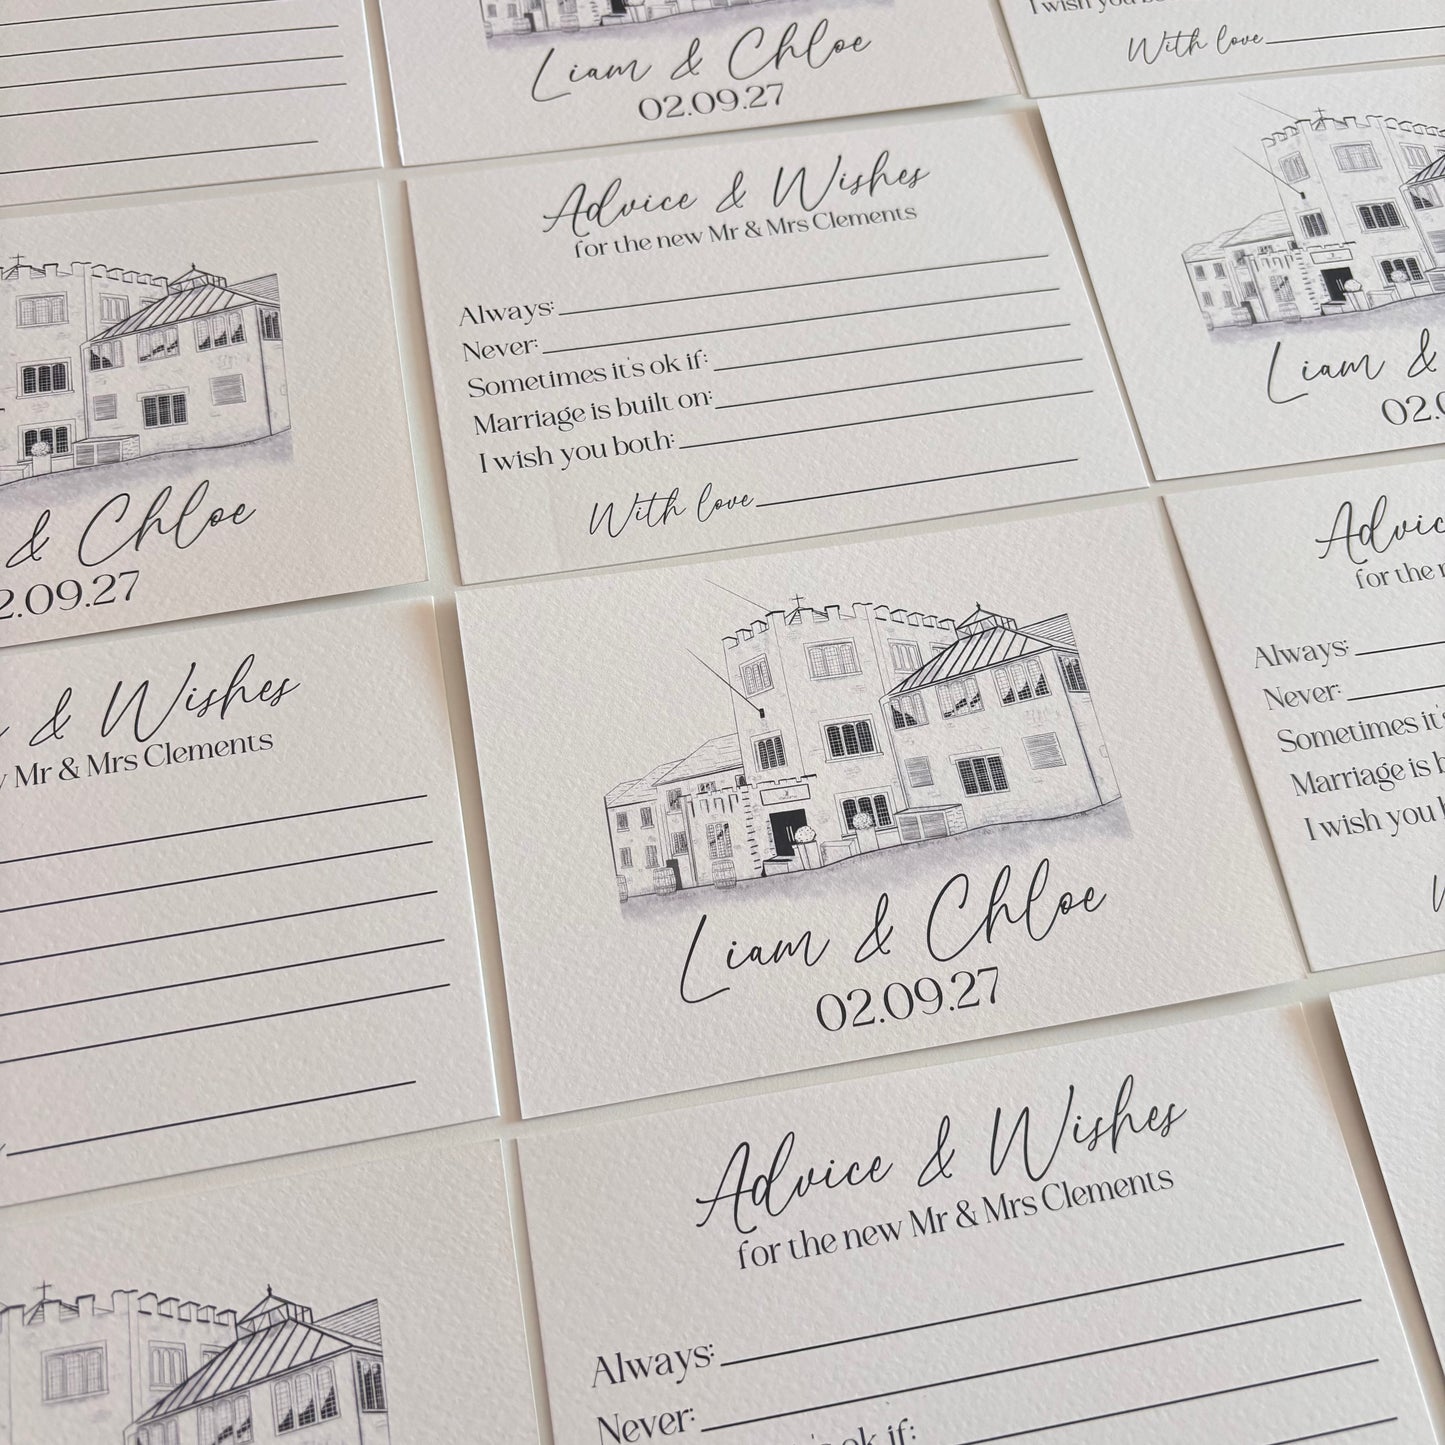 Liam & Chloe
02.09.27
I wish you
With love
Advice & Wishes
for the new Mr & Mrs Clements
Always:
Never:
Sometimes it's ok if:
Marriage is built on:
I wish you both:
With love
Liam &
& Chloe
2.09.27
& Wishes
Mr & Mrs Clements
Liam & Chloe
02.09.27
for the
Always:
Never:
Sometimes it's
Marriage is
I wish you
Advice & Wishes
for the new Mr & Mrs Clements
Always:
Never:
ok if: